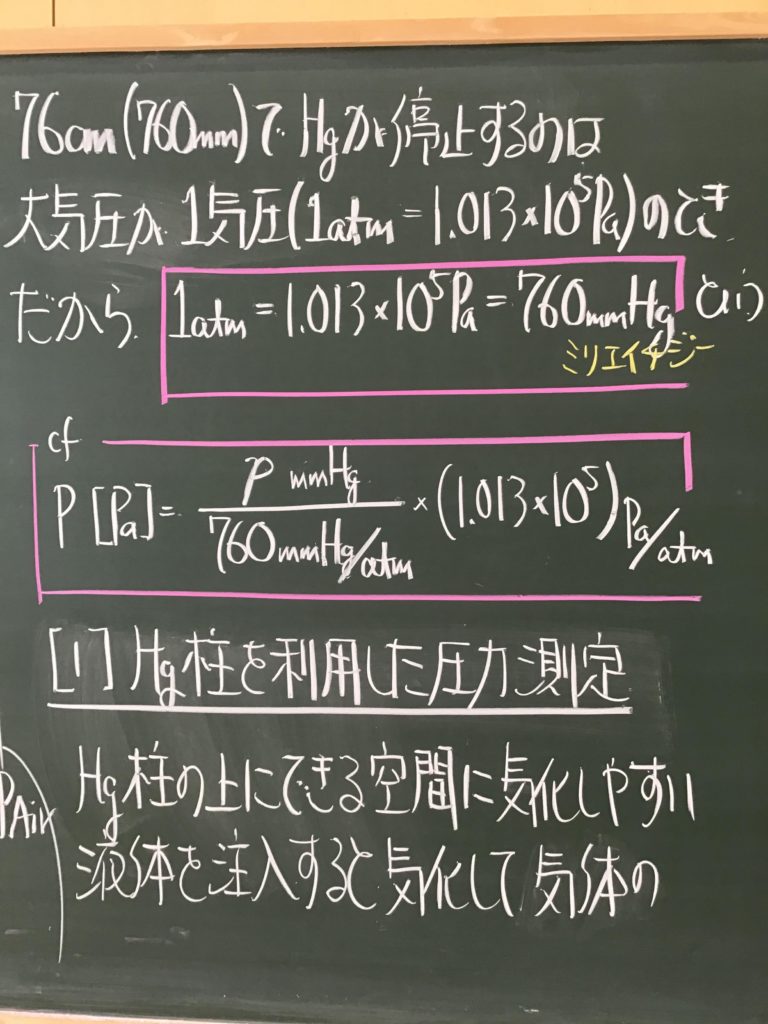 76cm(760mm)で Hgが停止するのは
大気圧が 1気圧(1atm = 1.013×10⁵Pa)のとき
だから 1atm = 1.013×10⁵Pa = 760mmHg という
ミリエイチジー
cf
P [Pa] = p mmHg / 760mmHg/atm × (1.013×10⁵) Pa/atm
[1] Hg柱を利用した圧力測定
Hg柱の上にできる空間に気化しやすい
PAir
液体を注入すると気化して気体の